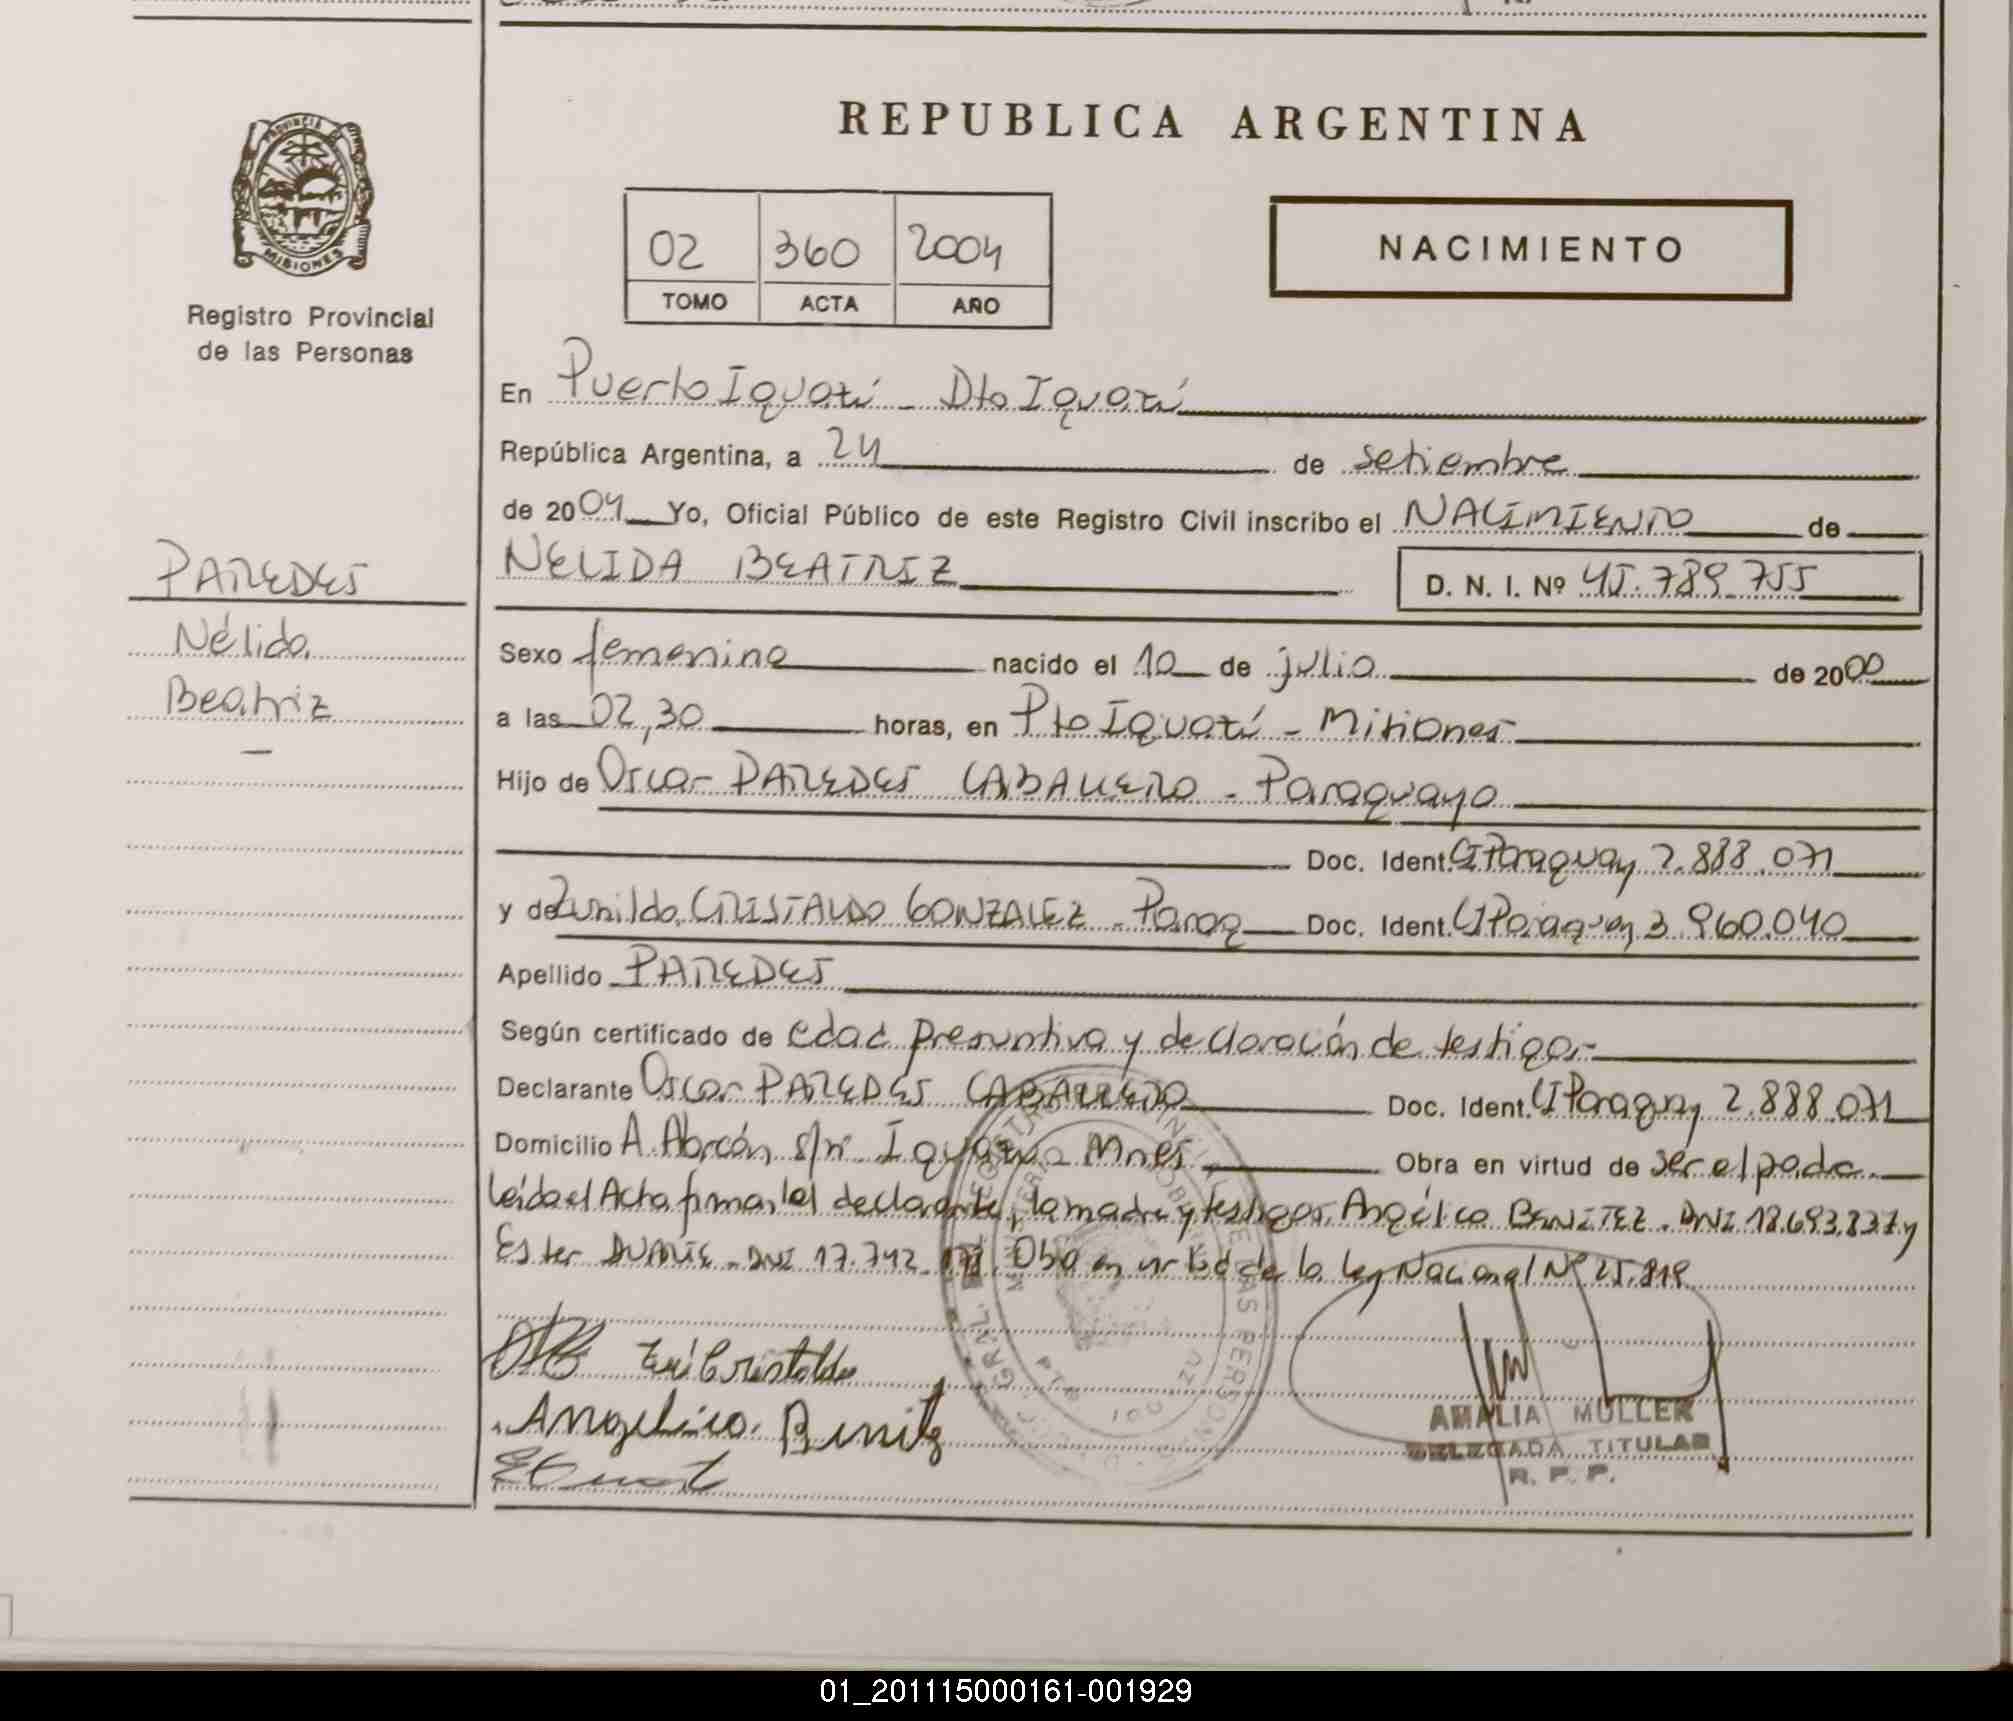 REPUBLICA ARGENTINA
PROVINCIA DE MISIONES
Registro Provincial
de las Personas
02 360 2004
TOMO ACTA AÑO
NACIMIENTO
En Puerto Iguazú - Dto Iguazú
República Argentina, a 24 de setiembre
de 2004 Yo, Oficial Público de este Registro Civil inscribo el NACIMIENTO de
NELIDA BEATRIZ D. N. I. Nº 45.789.755
PAREDES
Nélida
Beatriz
Sexo femenino nacido el 10 de julio de 2000
a las 02,30 horas, en Pto Iguazú - Misiones
Hijo de Oscar PAREDES CABALLERO - Paraguayo
Doc. Ident. CI Paraguay 2.888.071
y de Zunilda CRISTALDO GONZALEZ - Parag Doc. Ident. CI Paraguay 3.960.040
Apellido PAREDES
Según certificado de edad presuntiva y declaración de testigos
Declarante Oscar PAREDES CABALLERO Doc. Ident. CI Paraguay 2.888.071
Domicilio A. Abrcán s/nº Iguazú - Mnes Obra en virtud de ser el padre
leída el Acta firman el declarante, la madre y testigos Angélica BENITEZ - DNI 18.693.837 y
Ester DUARTE - DNI 17.742. Obra en virtud de la ley Nacional Nº 25.819
Zuni Cristaldo
Angelica Benitez
AMALIA MULLER
DELEGADA TITULAR
R. P. P.
01_201115000161-001929